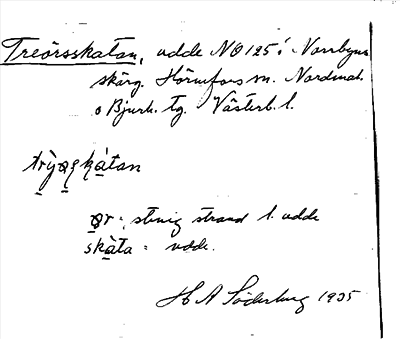 Treörsskatan, udde NO 125 i Norrbyns
skärg. Hörnefors sn. Nordmal.
o Bjurh. tg. Västerb. l.
trỳǫʂkàtan
ǫr: stenig strand l. udde
skàta = udde.
H A Söderberg 1935